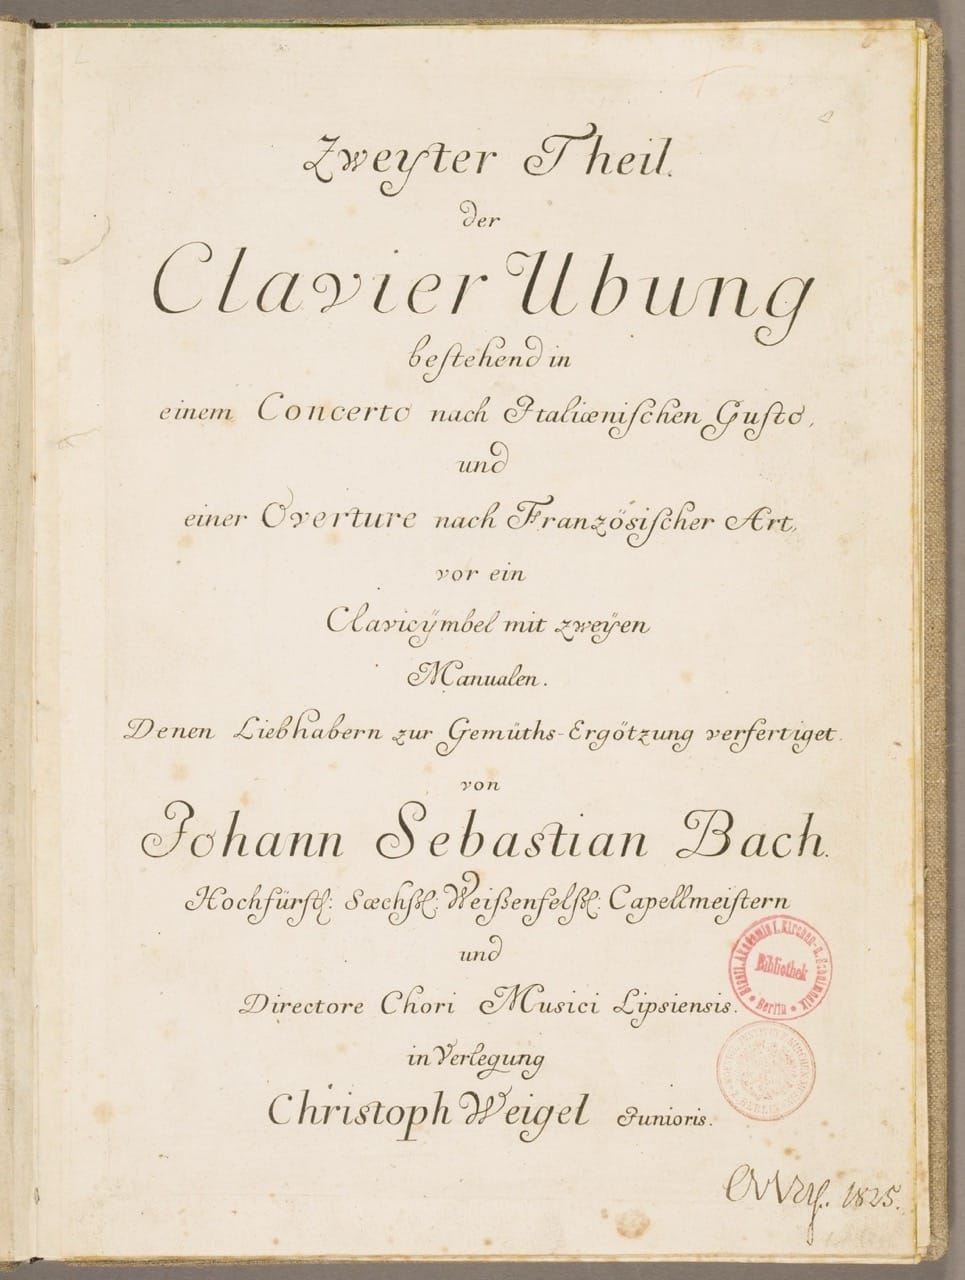 Zweyter Theil.
der
Clavier Ubung
bestehend in
einem Concerto nach Italiænischen Gusto,
und
einer Overture nach Französischer Art,
vor ein
Clavicÿmbel mit zweÿen
Manualen.
Denen Liebhabern zur Gemüths-Ergötzung verfertiget.
von
Johann Sebastian Bach.
Hochfürstl: Sæchßl: Weißenfelßl: Capellmeistern
und
Directore Chori Musici Lipsiensis.
in Verlegung
Christoph Weigel Junioris.
Staatl. Akademie f. Kirchen- u. Schulmusik
Bibliothek
* Berlin *
BERLIN
1825.